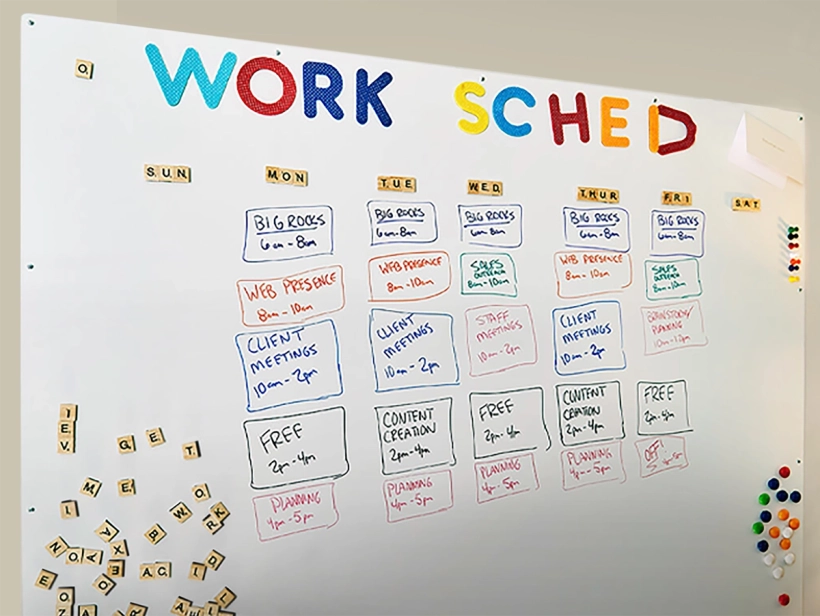 WORK SCHED
SUN. MON TUE WED THUR FRI SAT
BIG ROCKS
6am - 8am
BIG ROCKS
6am - 8am
BIG ROCKS
6am - 8am
BIG ROCKS
6am - 8am
BIG ROCKS
6am - 8am
WEB PRESENCE
8am - 10am
WEB PRESENCE
8am - 10am
SALES
OUTREACH
8am - 10am
WEB PRESENCE
8am - 10am
SALES
OUTREACH
8am - 10am
CLIENT
MEETINGS
10am - 2pm
CLIENT
MEETINGS
10am - 2pm
STAFF
MEETINGS
10am - 2pm
CLIENT
MEETINGS
10am - 2pm
PLANNING
FREE
2pm - 4pm
CONTENT
CREATION
2pm - 4pm
FREE
2pm - 4pm
CONTENT
CREATION
2pm - 4pm
FREE
2pm - 4pm
PLANNING
4pm - 5pm
PLANNING
4pm - 5pm
PLANNING
4pm - 5pm
PLANNING
4pm - 5pm
OFF
4pm - 5pm
GET
ME
WORK